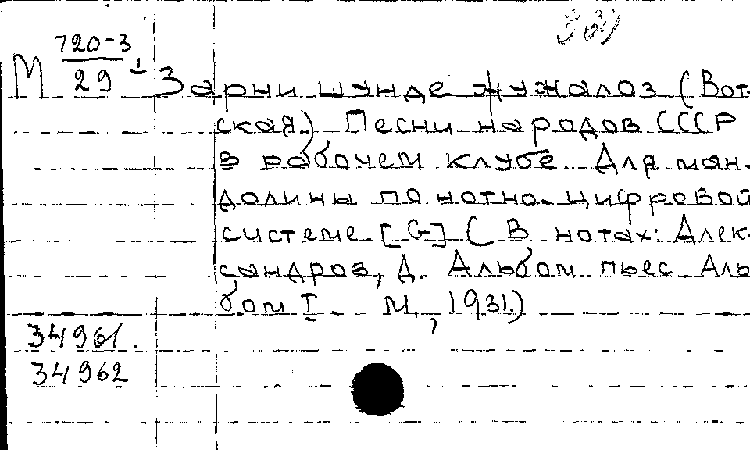 М 720-3/29 Зарни шунде жужалоз (Вот-
ская.) Песни народов СССР
в рабочем клубе. Для ман-
долины по нотно-цифровой
системе [G] (В нотах: Алек-
сандров, А. Альбом пьес. Аль-
бом I М., 1931.)
34961.
34962